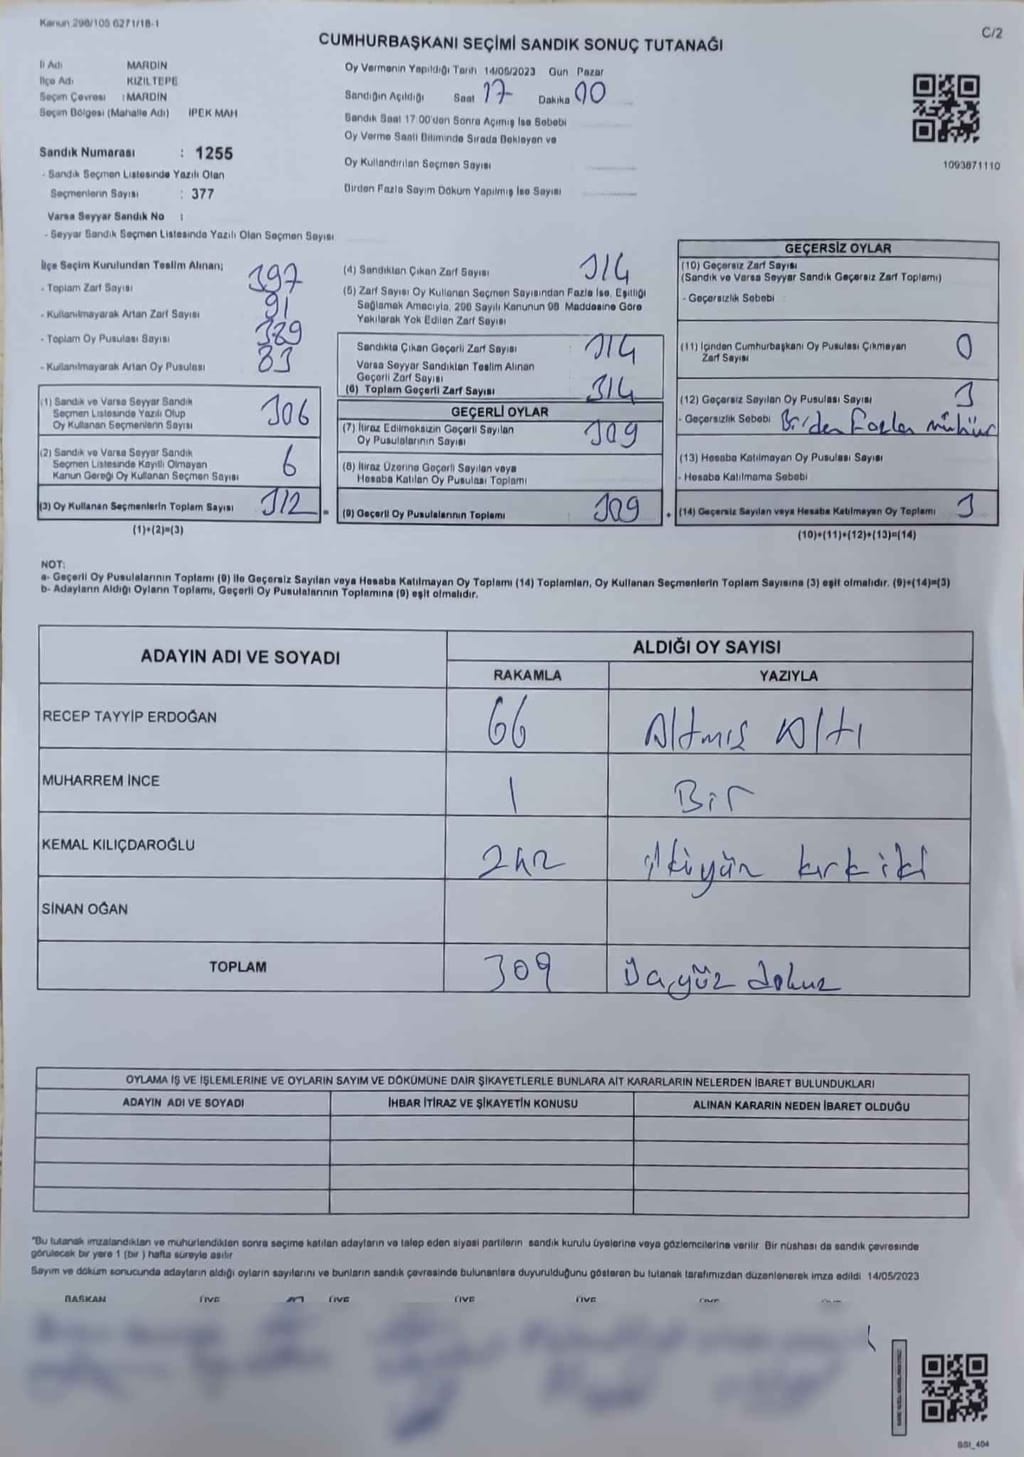 Kanun 298/105 6271/18-1
C/2
CUMHURBAŞKANI SEÇİMİ SANDIK SONUÇ TUTANAĞI
İl Adı MARDİN
İlçe Adı KIZILTEPE
Seçim Çevresi : MARDİN
Seçim Bölgesi (Mahalle Adı) İPEK MAH
Sandık Numarası : 1255
- Sandık Seçmen Listesinde Yazılı Olan
Seçmenlerin Sayısı : 377
Varsa Seyyar Sandık No :
- Seyyar Sandık Seçmen Listesinde Yazılı Olan Seçmen Sayısı
Oy Vermenin Yapıldığı Tarih 14/05/2023 Gün Pazar
Sandığın Açıldığı Saat 17 Dakika 00
Sandık Saat 17:00'den Sonra Açımış İse Sebebi
Oy Verme Saati Bitiminde Sırada Bekleyen ve
Oy Kullandırılan Seçmen Sayısı
Birden Fazla Sayım Döküm Yapılmış İse Sayısı
1093871110
İlçe Seçim Kurulundan Teslim Alınan;
- Toplam Zarf Sayısı 397
- Kullanılmayarak Artan Zarf Sayısı 91
- Toplam Oy Pusulası Sayısı 389
- Kullanılmayarak Artan Oy Pusulası 83
(1) Sandık ve Varsa Seyyar Sandık
Seçmen Listesinde Yazılı Olup
Oy Kullanan Seçmenlerin Sayısı 306
(2) Sandık ve Varsa Seyyar Sandık
Seçmen Listesinde Kayıtlı Olmayan
Kanun Gereği Oy Kullanan Seçmen Sayısı 6
(3) Oy Kullanan Seçmenlerin Toplam Sayısı 312 =
(1)+(2)=(3)
(4) Sandıktan Çıkan Zarf Sayısı 314
(5) Zarf Sayısı Oy Kullanan Seçmen Sayısından Fazla İse, Eşitliği
Sağlamak Amacıyla, 298 Sayılı Kanunun 98 Maddesine Göre
Yakılarak Yok Edilen Zarf Sayısı
Sandıkta Çıkan Geçerli Zarf Sayısı 314
Varsa Seyyar Sandıktan Teslim Alınan
Geçerli Zarf Sayısı
(6) Toplam Geçerli Zarf Sayısı 314
GEÇERLİ OYLAR
(7) İtiraz Edilmeksizin Geçerli Sayılan
Oy Pusulalarının Sayısı 309
(8) İtiraz Üzerine Geçerli Sayılan veya
Hesaba Katılan Oy Pusulası Toplamı
(9) Geçerli Oy Pusulalarının Toplamı 309 +
GEÇERSİZ OYLAR
(10) Geçersiz Zarf Sayısı
(Sandık ve Varsa Seyyar Sandık Geçersiz Zarf Toplamı)
- Geçersizlik Sebebi
(11) İçinden Cumhurbaşkanı Oy Pusulası Çıkmayan
Zarf Sayısı 0
(12) Geçersiz Sayılan Oy Pusulası Sayısı 3
- Geçersizlik Sebebi Birden Fazla mühür
(13) Hesaba Katılmayan Oy Pusulası Sayısı
- Hesaba Katılmama Sebebi
(14) Geçersiz Sayılan veya Hesaba Katılmayan Oy Toplamı 3
(10)+(11)+(12)+(13)=(14)
NOT:
a- Geçerli Oy Pusulalarının Toplamı (9) ile Geçersiz Sayılan veya Hesaba Katılmayan Oy Toplamı (14) Toplamları, Oy Kullanan Seçmenlerin Toplam Sayısına (3) eşit olmalıdır. (9)+(14)=(3)
b- Adayların Aldığı Oyların Toplamı, Geçerli Oy Pusulalarının Toplamına (9) eşit olmalıdır.
ADAYIN ADI VE SOYADI ALDIĞI OY SAYISI
RAKAMLA YAZIYLA
RECEP TAYYİP ERDOĞAN 66 Altmış Altı
MUHARREM İNCE 1 Bir
KEMAL KILIÇDAROĞLU 242 ikiyüz kırk iki
SİNAN OĞAN
TOPLAM 309 Üçyüz dokuz
OYLAMA İŞ VE İŞLEMLERİNE VE OYLARIN SAYIM VE DÖKÜMÜNE DAİR ŞİKAYETLERLE BUNLARA AİT KARARLARIN NELERDEN İBARET BULUNDUKLARI
ADAYIN ADI VE SOYADI İHBAR İTİRAZ VE ŞİKAYETİN KONUSU ALINAN KARARIN NEDEN İBARET OLDUĞU
"Bu tutanak imzalandıktan ve mühürlendikten sonra seçime katılan adayların ve talep eden siyasi partilerin sandık kurulu üyelerine veya gözlemcilerine verilir Bir nüshası da sandık çevresinde
görülecek bir yere 1 (bir) hafta süreyle asılır
Sayım ve döküm sonucunda adayların aldığı oyların sayılarını ve bunların sandık çevresinde bulunanlara duyurulduğunu gösteren bu tutanak tarafımızdan düzenlenerek imza edildi 14/05/2023
BAŞKAN ÜYE ÜYE ÜYE ÜYE
SSI_404